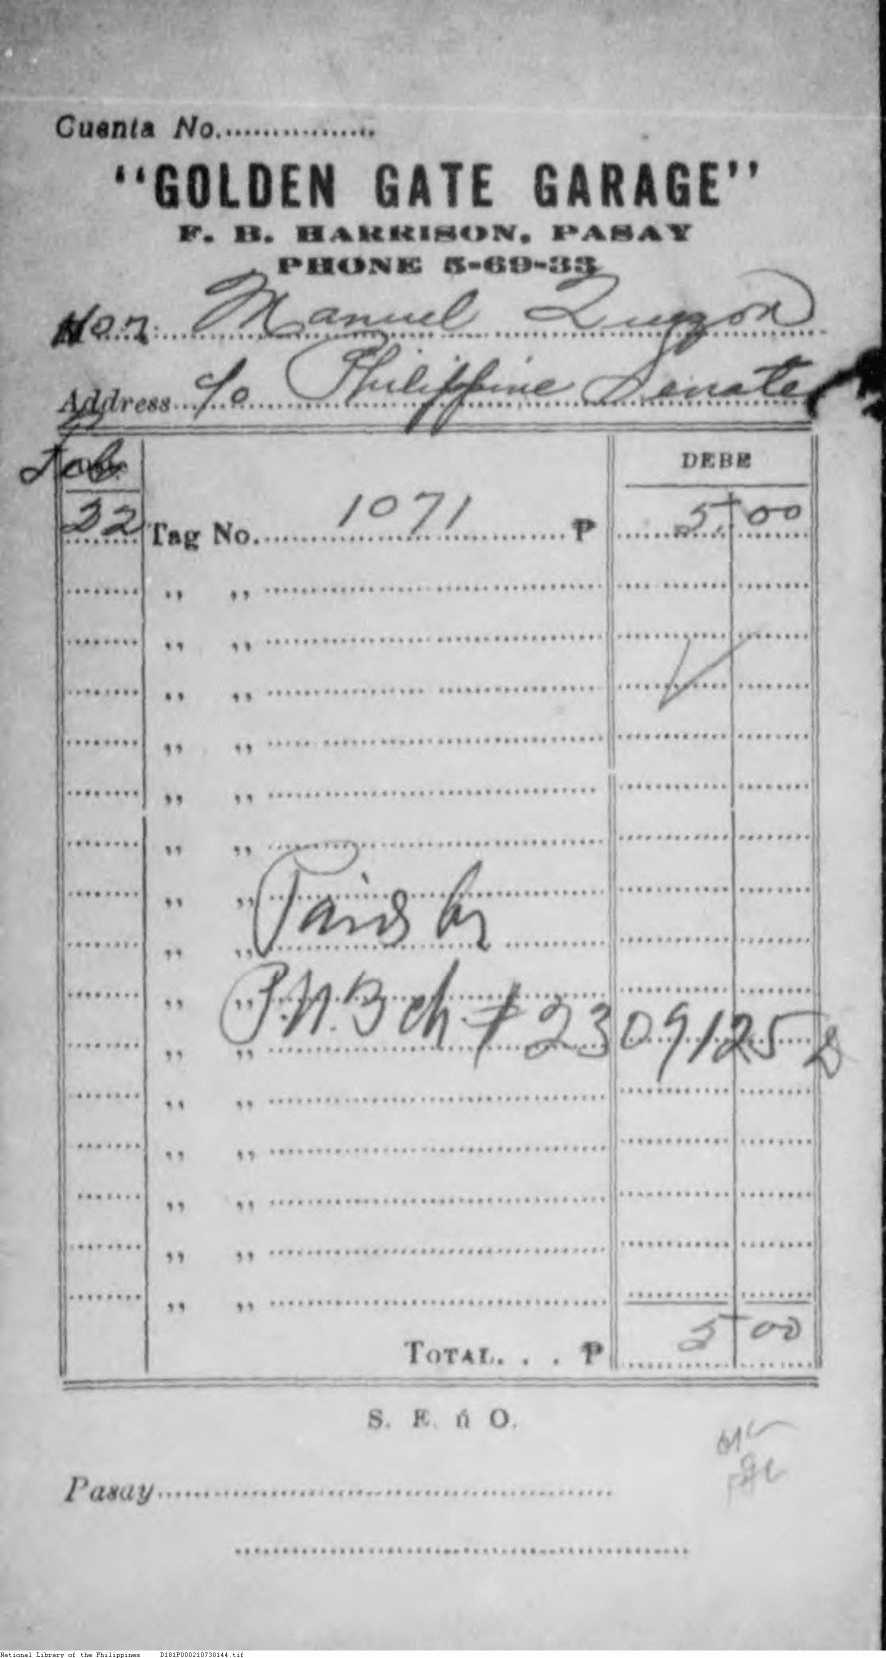 Cuenta No.
"GOLDEN GATE GARAGE"
F. B. HARRISON, PASAY
PHONE 5-69-33
Hon. Manuel Quezon
Address c/o Philippine Senate
Feb. DEBE
22 Tag No. 1071 ₱ 5.00
" "
" "
" "
" "
" "
" "
" " Paid by
" "
" " P.N.B ch # 2309125 D
" "
" "
" "
" "
" "
" "
TOTAL. . . ₱ 5 00
S. E. ú O.
Pasay
National Library of the Philippines D181P000210730144.tif